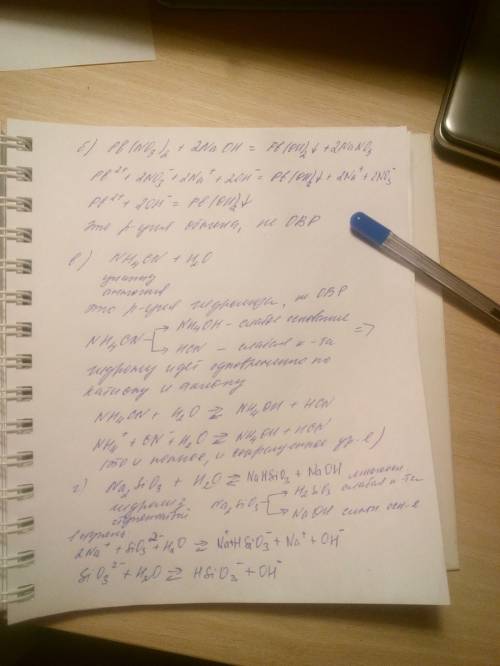 б) Pb(NO₃)₂ + 2NaOH = Pb(OH)₂↓ + 2NaNO₃
Pb²⁺ + 2NO₃⁻ + 2Na⁺ + 2OH⁻ = Pb(OH)₂↓ + 2Na⁺ + 2NO₃⁻
Pb²⁺ + 2OH⁻ = Pb(OH)₂↓
Это р-ция обмена, не ОВР
в) NH₄CN + H₂O
цианид
аммония
это р-ция гидролиза, не ОВР
NH₄CN → NH₄OH - слабое основание
→ HCN - слабая к-та =>
гидролиз идет одновременно по
катиону и аниону
NH₄CN + H₂O ⇄ NH₄OH + HCN
NH₄⁺ + CN⁻ + H₂O ⇄ NH₄OH + HCN
(это и полное, и сокращенное ур-е)
г) Na₂SiO₃ + H₂O ⇄ NaHSiO₃ + NaOH
гидролиз Na₂SiO₃ → H₂SiO₃ слабая к-та
ступенчатый → NaOH сильн осн-е
I ступень
2Na⁺ + SiO₃²⁻ + H₂O ⇄ Na⁺ + HSiO₃⁻ + Na⁺ + OH⁻
SiO₃²⁻ + H₂O ⇄ HSiO₃⁻ + OH⁻